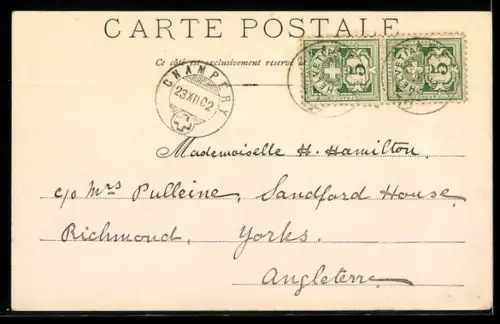 CARTE POSTALE
Ce côté est exclusivement réservé
CHAMPÉRY
23 XII 02
HELVETIA 5
HELVETIA 5
Mademoiselle H. Hamilton,
c/o Mrs Pulleine, Sandford House,
Richmond, Yorks.
Angleterre